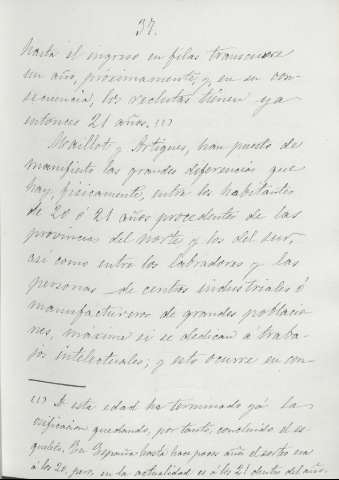 37.
hasta el ingreso en filas transcurre
un año, proximamente, y, en su con-
secuencia, los reclutas tienen ya
entonces 21 años. (1)
Maillot y Artigues, han puesto de
manifiesto las grandes diferencias que
hay, fisicamente, entre los habitantes
de 20 ó 21 años procedentes de las
provincias del norte y los del sur,
asi como entre los labradores y las
personas de centros industriales ó
manufactureros de grandes poblacio-
nes, máxime si se dedican á traba-
jos intelectuales; y esto ocurre en con-
(1) A esta edad ha terminado yá la
osificacion quedando, por tanto, concluido el es-
queleto. En España hasta hace pocos años el sorteo era
á los 20, pero, en la actualidad es á los 21 dentro del año.